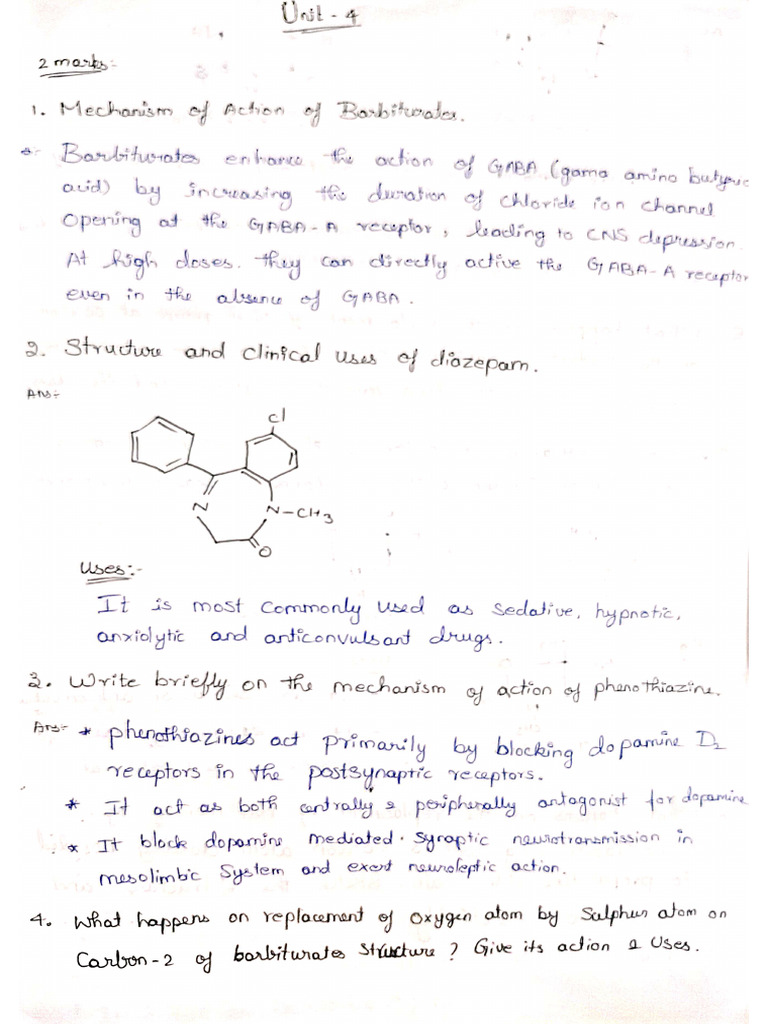 Unit - 4
2 marks:-
1. Mechanism of Action of Barbiturates.
Barbiturates enhance the action of GABA (gama amino butyric
acid) by increasing the duration of chloride ion channel
Opening at the GABA-A receptor, leading to CNS depression.
At high doses. they can directly active the GABA-A receptor
even in the absence of GABA.
2. Structure and clinical uses of diazepam.
Ans:-
cl
N
N-CH3
O
Uses:-
It is most commonly used as sedative, hypnotic,
anxiolytic and anticonvulsant drugs.
3. Write briefly on the mechanism of action of phenothiazine.
Ans:- * phenothiazines act primarily by blocking dopamine D2
receptors in the postsynaptic receptors.
* It act as both centrally & peripherally antagonist for dopamine
* It block dopamine mediated synaptic neurotransmission in
mesolimbic System and exert neuroleptic action.
4. What happens on replacement of Oxygen atom by Sulphur atom on
Carbon-2 of barbiturates structure? Give its action & Uses.